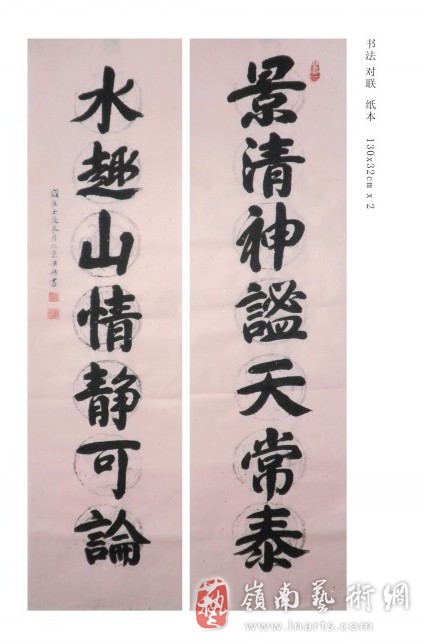 书法 对联 纸本 130x32cm x 2
景清神謐天常泰
水趣山情静可論
嶺南藝術網
www.lnarts.com